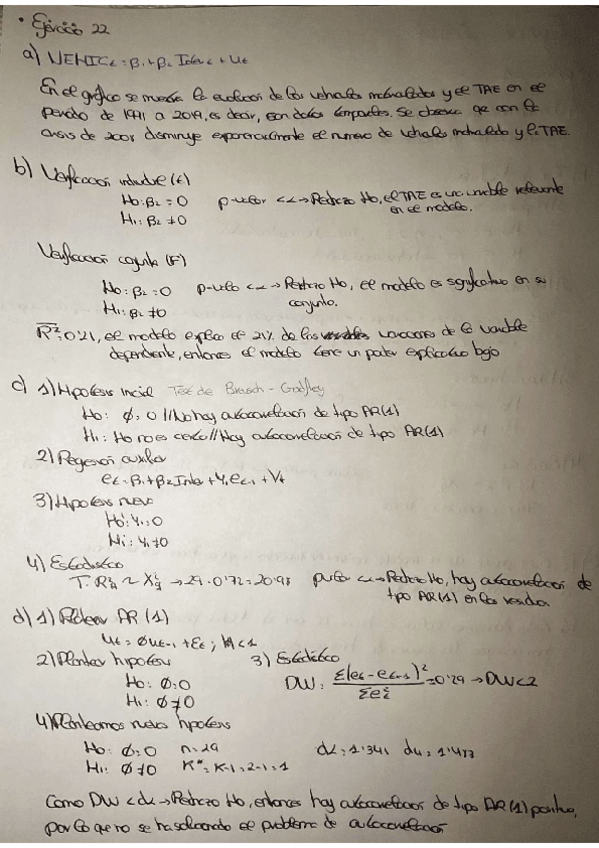 • Ejercicio 22
a) VEHICt = β1 + β2 Intert + ut
En el gráfico se muestra la evolución de los vehículos matriculados y el TAE en el
periodo de 1991 a 2019, es decir, son datos temporales. Se observa que con la
crisis de 2008 disminuye exponencialmente el numero de vehículos matriculado y el TAE.
b) Verificación individual (t)
H0: β2 = 0 p-valor < α → Rechazo H0, el TAE es una variable relevante
H1: β2 ≠ 0 en el modelo.
Verificación conjunta (F)
H0: β2 = 0 p-valor < α → Rechazo H0, el modelo es significativo en su
H1: β2 ≠ 0 conjunto.
R̄² = 0'21, el modelo explica el 21% de las variaciones de la variable
dependiente, entonces el modelo tiene un poder explicativo bajo
c) 1) Hipótesis inicial Test de Breusch - Godfrey
H0: Ø = 0 // No hay autocorrelación de tipo AR(1)
H1: H0 no es cierto // Hay autocorrelación de tipo AR(1)
2) Regresión auxiliar
et = β1 + β2 Inter + γ1 et-1 + Vt
3) Hipótesis nueva
H0: γ1 = 0
H1: γ1 ≠ 0
4) Estadístico
T · R² ~ X² → 29 · 0'72 = 20'98 p-valor < α → Rechazo H0, hay autocorrelación de
tipo AR(1) en los residuos.
d) 1) AR (1)
ut = Øut-1 + Et ; |Ø| < 1
2) Plantear hipótesis 3) Estadístico
H0: Ø = 0 DW = Σ(et - et-1)² / Σe²t = 0'29 → DW < 2
H1: Ø ≠ 0
4) Planteamos nueva hipótesis
H0: Ø = 0 n = 29 dL = 1'341 du = 1'483
H1: Ø ≠ 0 K* = K - 1 = 2 - 1 = 1
Como DW < dL → Rechazo H0, entonces hay autocorrelación de tipo AR(1) positiva,
por lo que no se ha solucionado el problema de autocorrelación